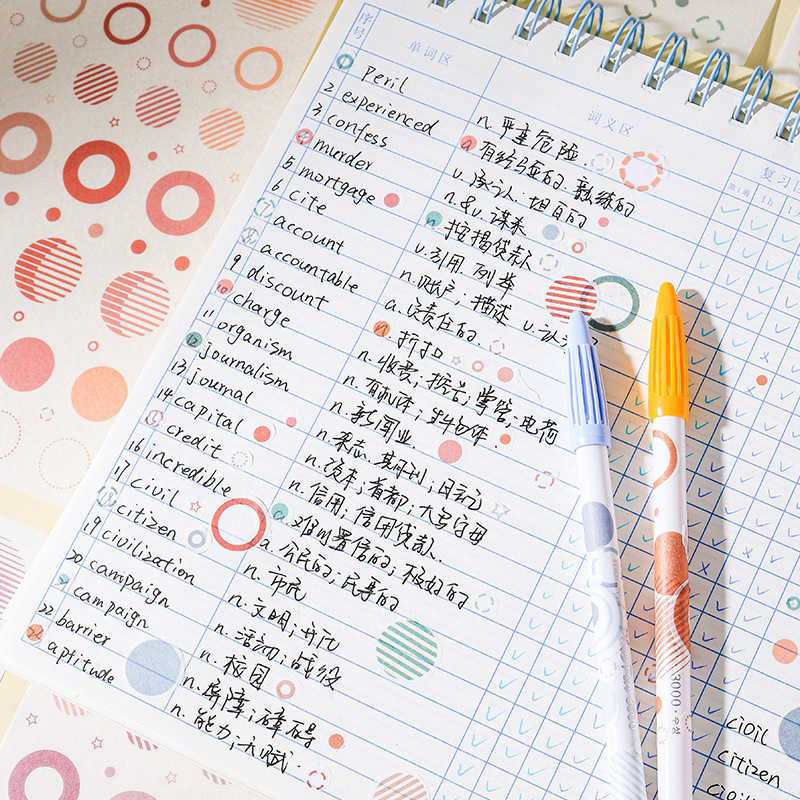 序号 单词区 词义区 复习区
第1遍 1h
Peril n. 严重危险.
2 experienced a 有经验的. 熟练的
3 confess v. 承认. 坦白的
4 murder n.&v. 谋杀
5 mortgage n. 按揭贷款
6 cite v. 引用. 列举
7 account n. 账户; 描述 v. 认
8 accountable a. 负责任的.
9 discount n. 折扣
10 charge n. 收费; 指控; 掌管; 电荷
11 organism n. 有机体; 生物体.
12 journalism n. 新闻业
13 journal n. 杂志. 期刊; 日记
14 capital n. 资本; 首都; 大写字母
15 credit n. 信用; 信用贷款.
16 incredible a. 难以置信的; 极好的
17 civil a. 公民的; 民事的
18 citizen n. 市民
19 civilization n. 文明; 开化
20 campaign n. 活动; 战役
21 campaign n. 校园
22 barrier n. 屏障; 障碍
23 aptitude n. 能力; 天赋.
3000
civil
citizen